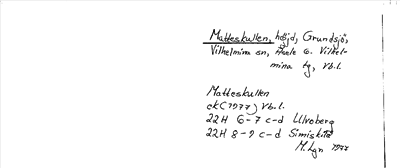 Matteskullen, höjd, Grundsjö,
Vilhelmina sn, Åsele o. Vilhel-
mina tg, Vb.l.
Matteskullen
ek (1977) Vb.l.
22H 6-7 c-d Ulvoberg
22H 8-9 c-d Simiskilä
M. Lgn 1977